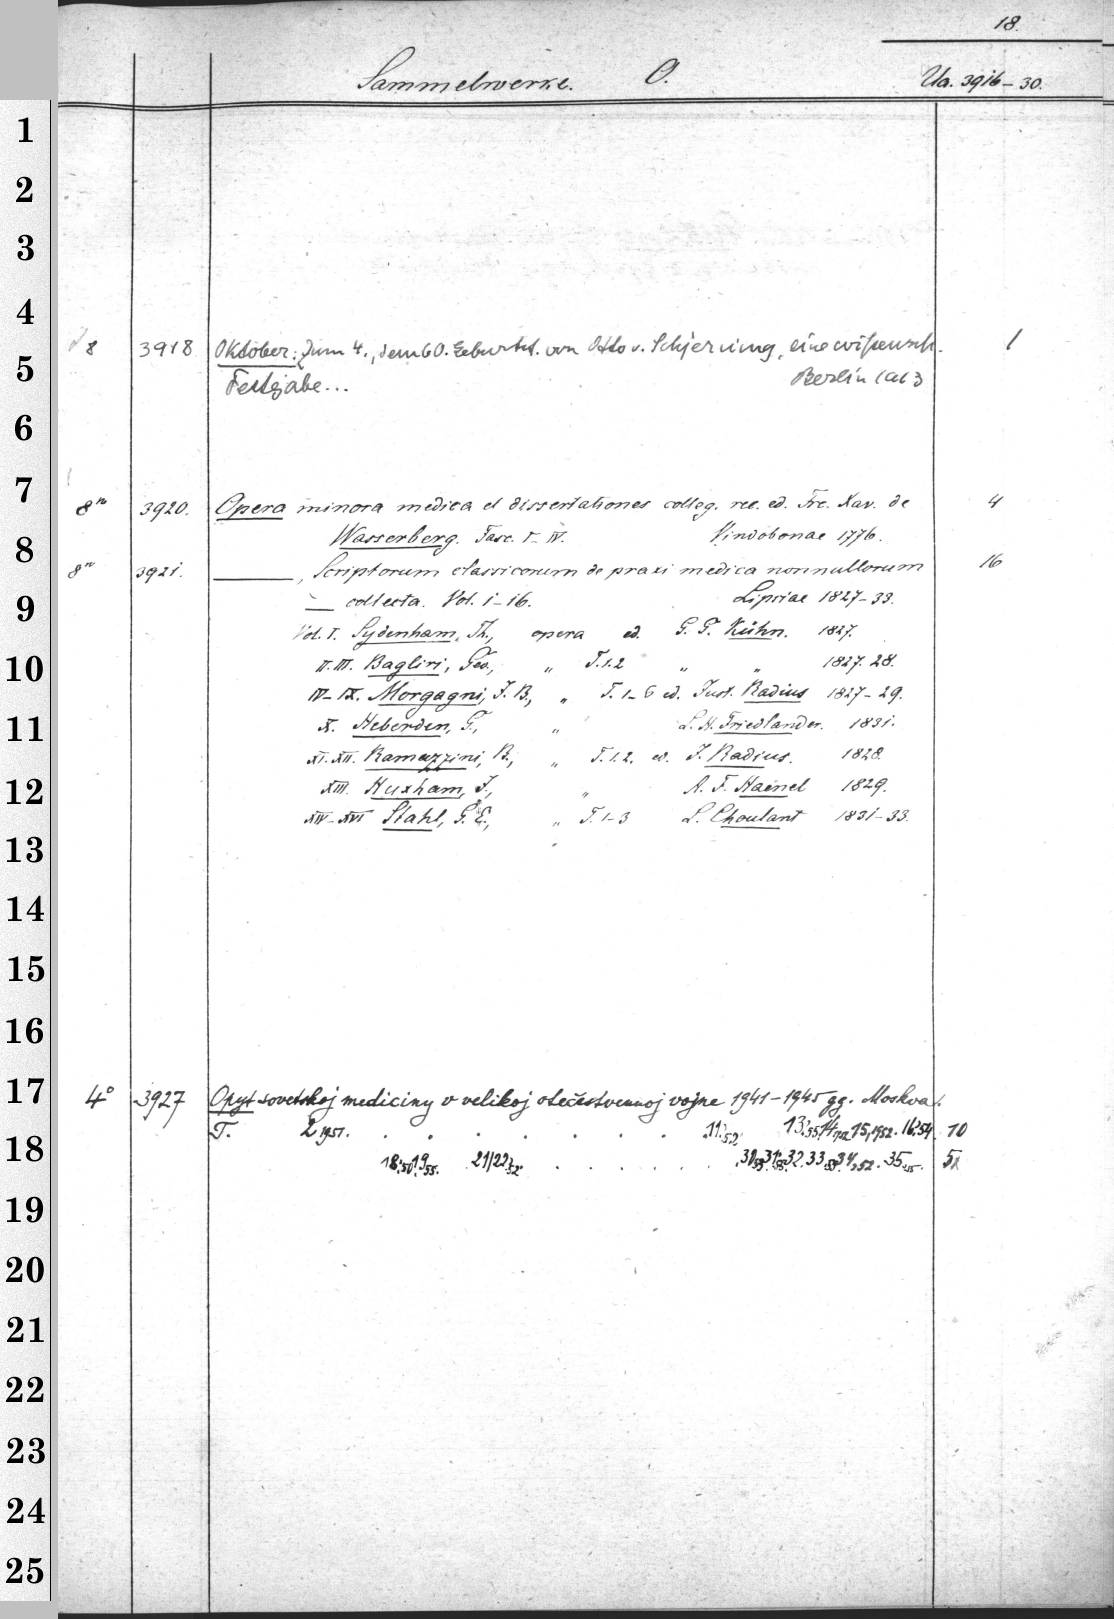 18.
Sammelwerke. O. Ua. 3916-30.
1
2
3
4
8 3918 Oktober: Zum 4., dem 60. Geburtst. von Otto v. Schjerning, eine wissensch. 1
5
Festgabe... Berlin 1913
6
7
8° 3920. Opera minora medica et dissertationes colleg. rec. ed. Frc. Xav. de 4
Wasserberg. Fasc. I-IV. Vindobonae 1776.
8
8° 3921. ———, Scriptorum classicorum de praxi medica nonnullorum 16
9
— collecta. Vol. 1-16. Lipsiae 1827-33.
Vol. I. Sydenham, Th., opera ed. G. G. Kühn. 1827.
10
II.III. Baglivi, Geo., „ T. 1.2 „ „ 1827.28.
IV-IX. Morgagni, J. B., „ T. 1-6 ed. Just. Radius 1827-29.
11
X. Heberden, G., „ L. H. Friedländer. 1831.
XI.XII. Ramazzini, B., „ T. 1.2. ed. J. Radius. 1828.
12
XIII. Huxham, J., „ A. F. Haenel 1829.
XIV-XVI Stahl, G. E., „ T. 1-3 L. Choulant 1831-33.
13
14
15
16
17
4° 3927 Opyt sovetskoj mediciny v velikoj otečestvennoj vojne 1941-1945 gg. Moskva.
T. 2 1951. . . . . . . . 11.'52 13.'55. 14, 15,1952. 16.'54. 10
18
18.'50. 19'55. 21/22'52. . . . . . . 31 32. 33 34,52. 35. 5
19
20
21
22
23
24
25